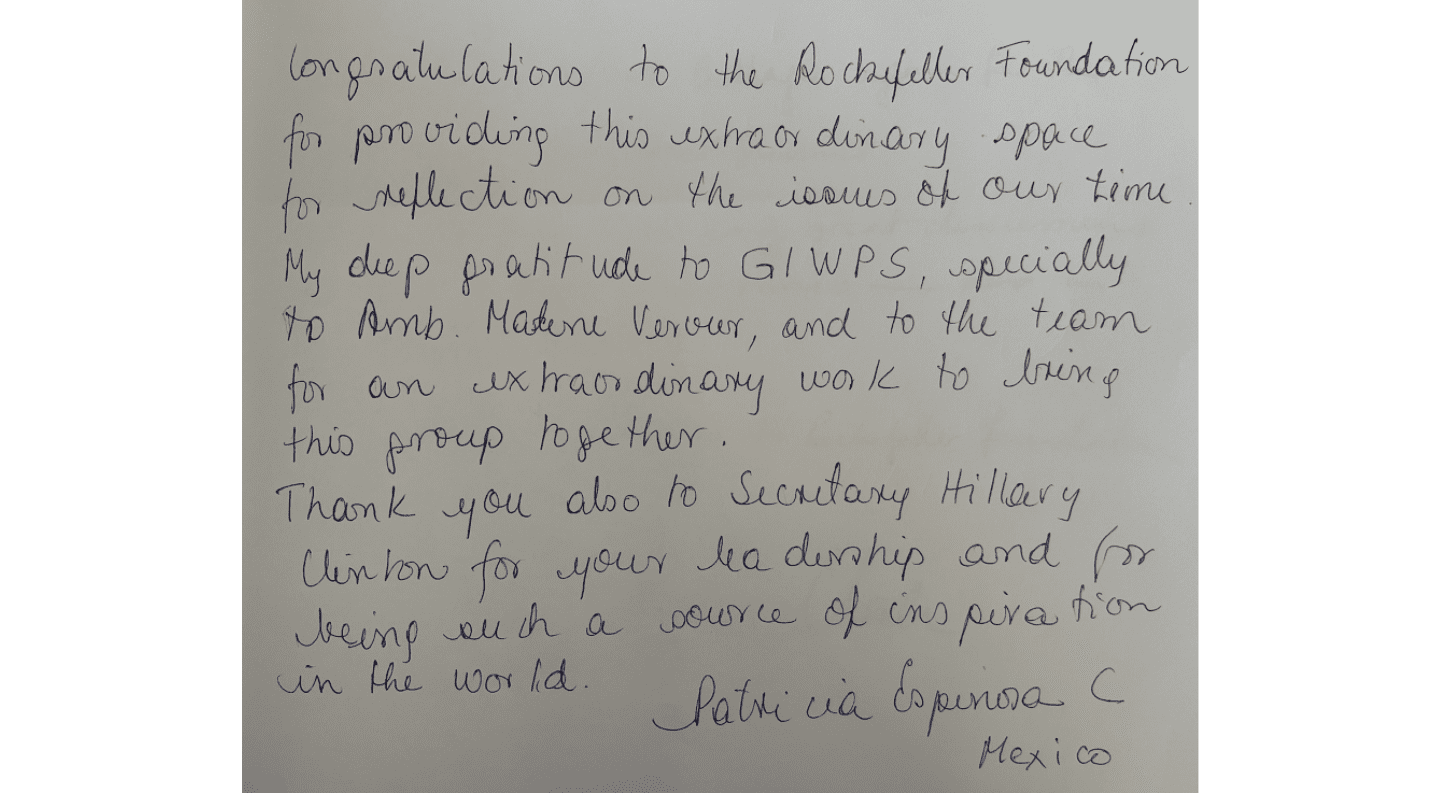 Congratulations to the Rockefeller Foundation
for providing this extraordinary space
for reflection on the issues of our time.
My deep gratitude to GIWPS, specially
to Amb. Verveer, and to the team
for an extraordinary work to bring
this group together.
Thank you also to Secretary Hillary
Clinton for your leadership and for
being such a source of inspiration
in the world.
Patricia Espinosa C
Mexico